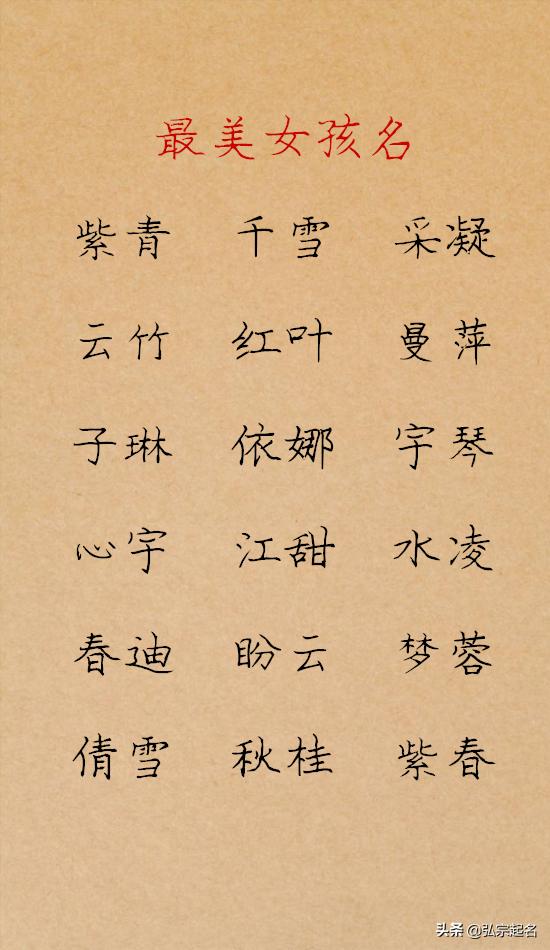 最美女孩名
紫青 千雪 采凝
云竹 红叶 曼萍
子琳 依娜 宇琴
心宇 江甜 水凌
春迪 盼云 梦蓉
倩雪 秋桂 紫春
头条 @弘宗起名